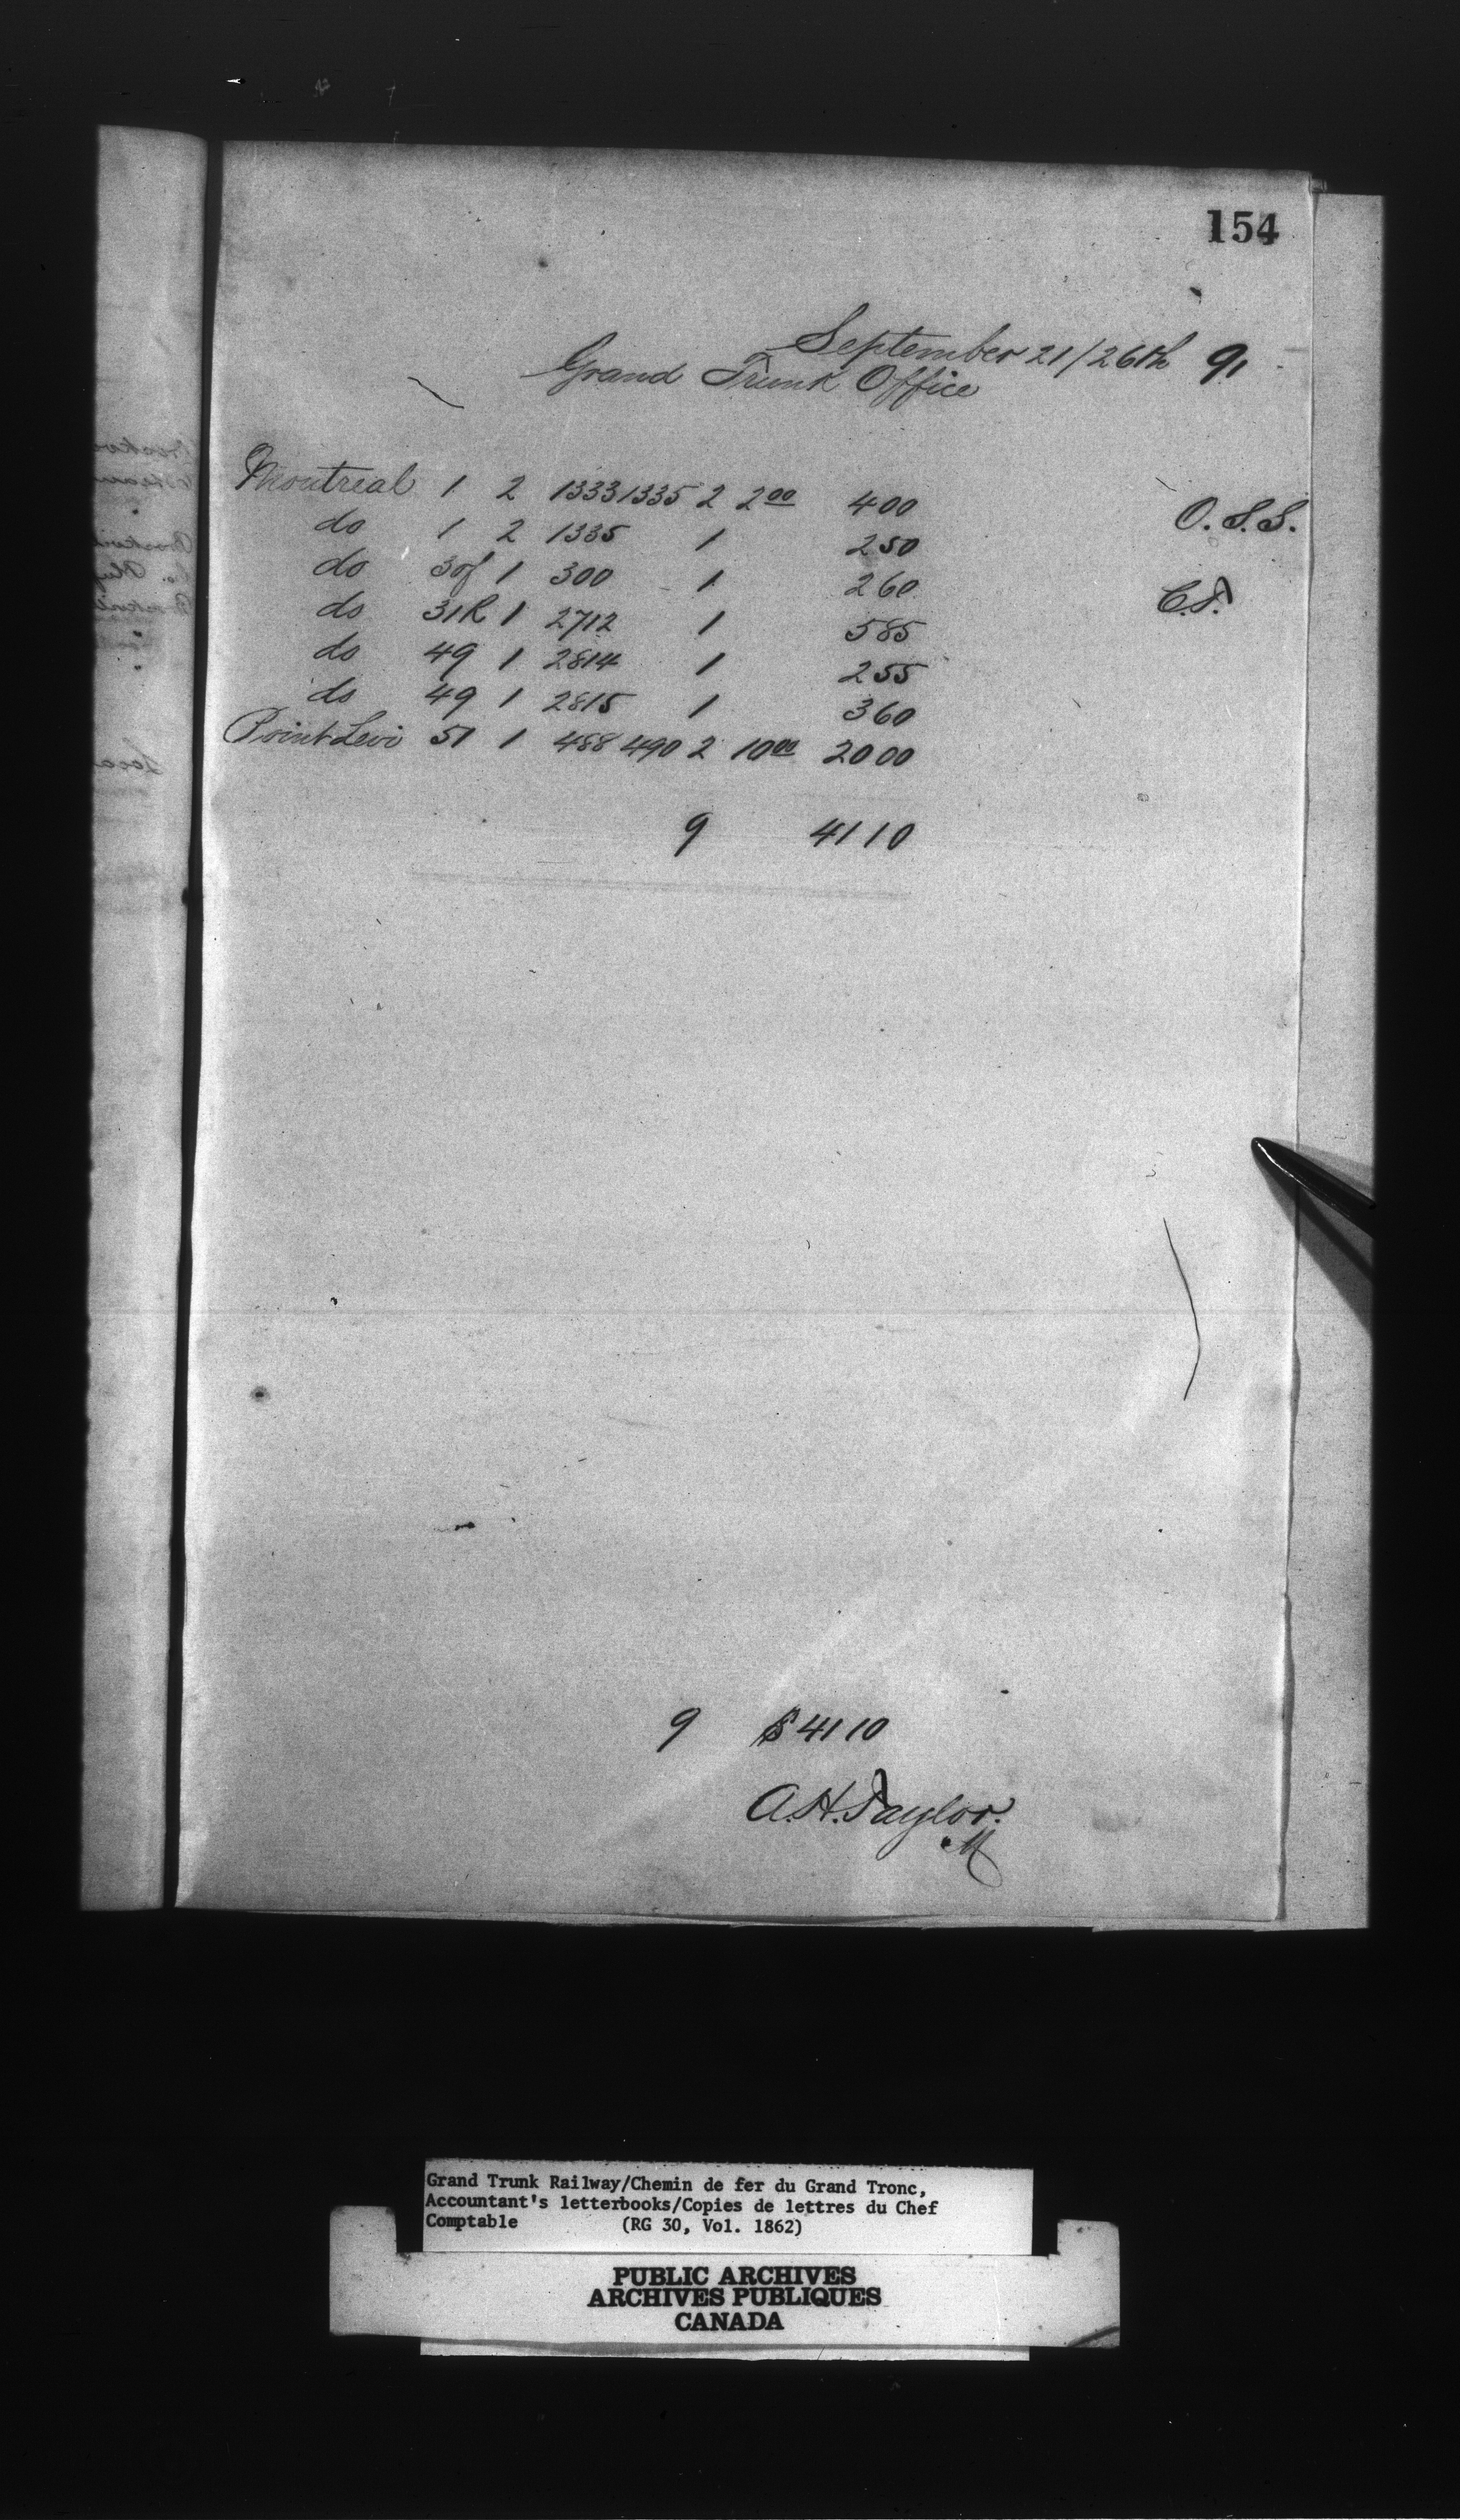 154
September 21/26th 91
Grand Trunk Office
Montreal 1 2 1333 1335 2 2 00 4 00 O.S.S.
do 1 2 1335 1 2 50
do 30f 1 300 1 2 60 C.T.
do 31R 1 2712 1 5 85
do 49 1 2814 1 2 55
do 49 1 2815 1 3 60
Point Levi 51 1 488 490 2 10 00 20 00
9 41 10
9 $ 41 10
A.H. Taylor.
M
Grand Trunk Railway/Chemin de fer du Grand Tronc,
Accountant's letterbooks/Copies de lettres du Chef
Comptable (RG 30, Vol. 1862)
PUBLIC ARCHIVES
ARCHIVES PUBLIQUES
CANADA